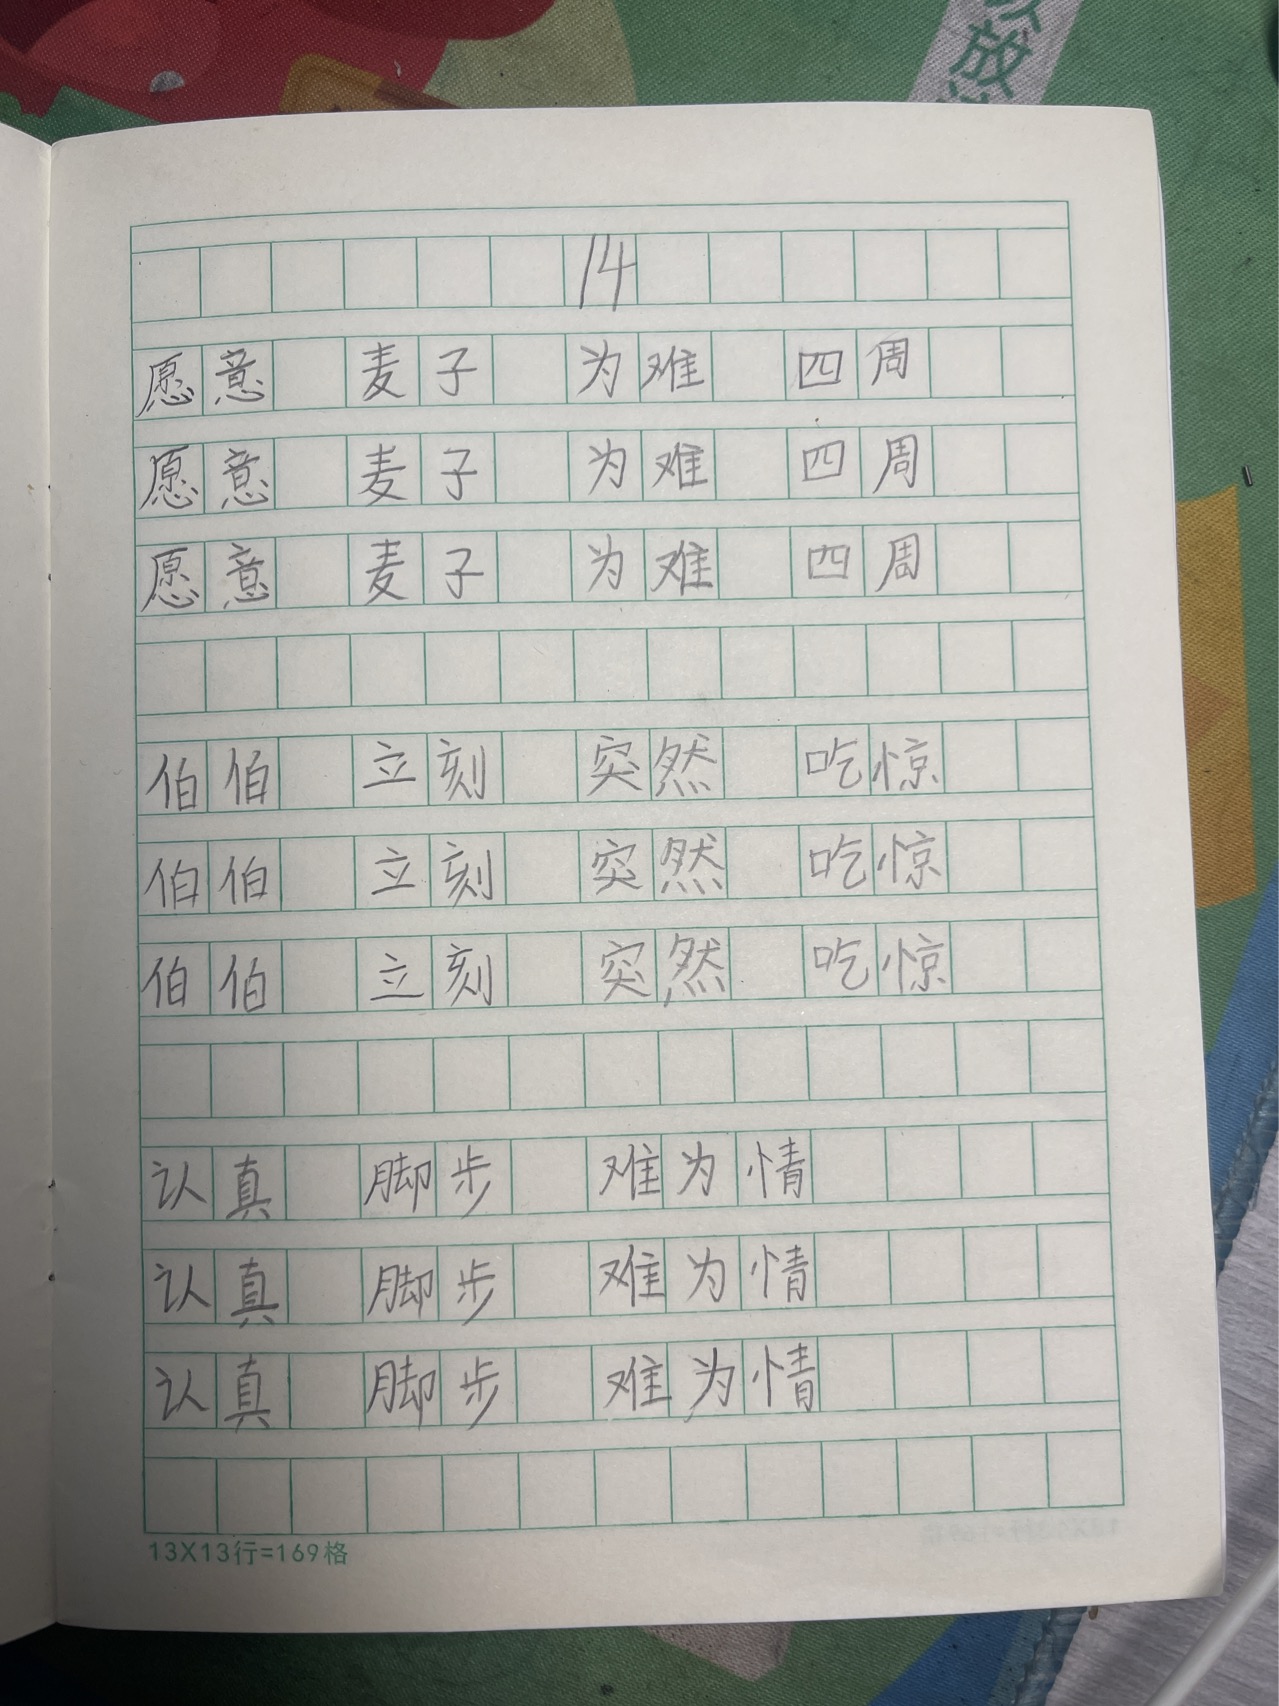 放
14
愿意 麦子 为难 四周
愿意 麦子 为难 四周
愿意 麦子 为难 四周
伯伯 立刻 突然 吃惊
伯伯 立刻 突然 吃惊
伯伯 立刻 突然 吃惊
认真 脚步 难为情
认真 脚步 难为情
认真 脚步 难为情
13X13行=169格